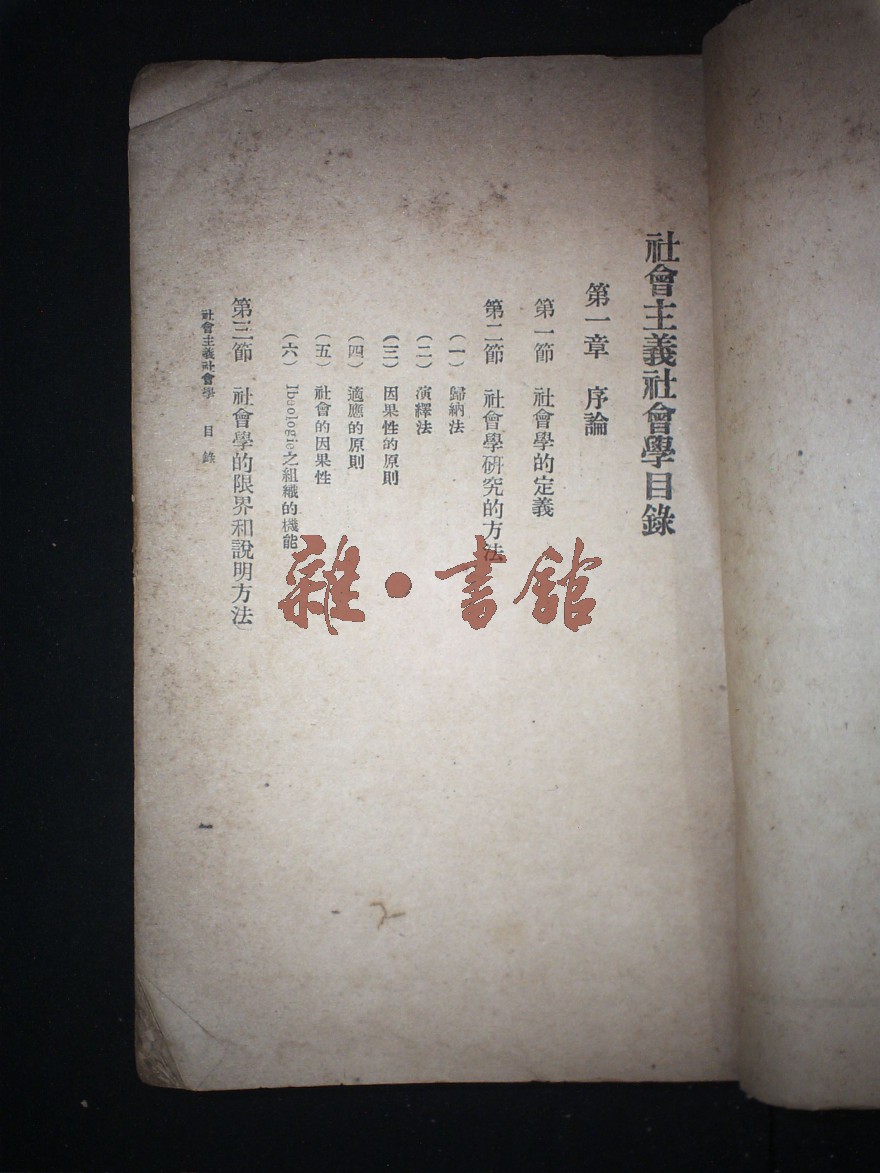 社會主義社會學目錄
第一章 序論
第一節 社會學的定義
第二節 社會學硏究的方法
(一) 歸納法
(二) 演繹法
(三) 因果性的原則
(四) 適應的原則
(五) 社會的因果性
(六) Ibeologie之組織的機能
第三節 社會學的限界和說明方法
社會主義社會學 目錄
一
雜・書館